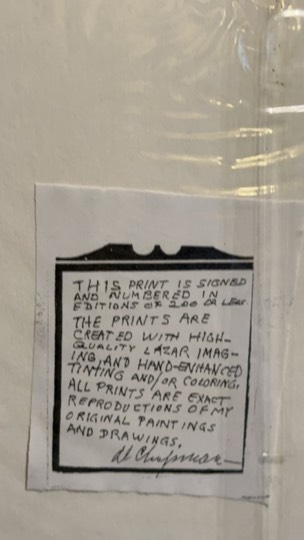 THIS PRINT IS SIGNED
AND NUMBERED IN
EDITIONS OF 200 OR LESS.
THE PRINTS ARE
CREATED WITH HIGH-
QUALITY LAZAR IMAG-
ING, AND HAND-ENHANCED
TINTING AND/OR COLORING.
ALL PRINTS ARE EXACT
REPRODUCTIONS OF MY
ORIGINAL PAINTINGS
AND DRAWINGS.
Chapman